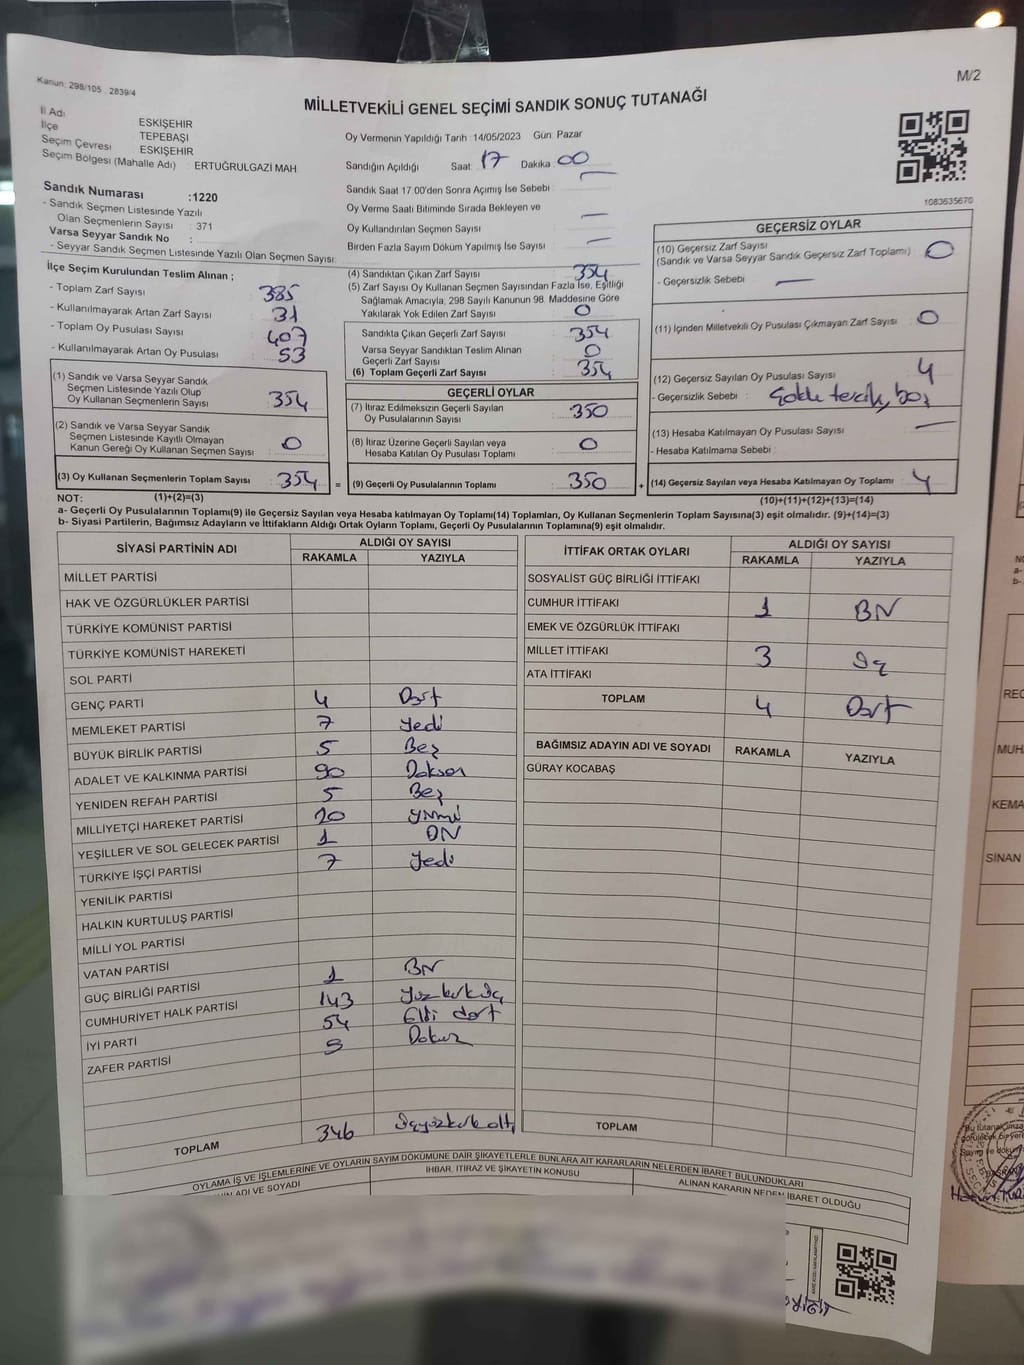 Kanun: 298/105 . 2839/4
M/2
MİLLETVEKİLİ GENEL SEÇİMİ SANDIK SONUÇ TUTANAĞI
İl Adı ESKİŞEHİR
İlçe TEPEBAŞI
Seçim Çevresi ESKİŞEHİR
Seçim Bölgesi (Mahalle Adı) : ERTUĞRULGAZİ MAH
Sandık Numarası :1220
- Sandık Seçmen Listesinde Yazılı
Olan Seçmenlerin Sayısı : 371
Varsa Seyyar Sandık No :
- Seyyar Sandık Seçmen Listesinde Yazılı Olan Seçmen Sayısı:
Oy Vermenin Yapıldığı Tarih :14/05/2023 Gün: Pazar
Sandığın Açıldığı Saat: 17 Dakika: 00
Sandık Saat 17:00'den Sonra Açımış İse Sebebi : —
Oy Verme Saati Bitiminde Sırada Bekleyen ve
Oy Kullandırılan Seçmen Sayısı : —
Birden Fazla Sayım Döküm Yapılmış İse Sayısı : —
1083635670
İlçe Seçim Kurulundan Teslim Alınan ;
- Toplam Zarf Sayısı : 385
- Kullanılmayarak Artan Zarf Sayısı : 31
- Toplam Oy Pusulası Sayısı : 407
- Kullanılmayarak Artan Oy Pusulası : 53
(1) Sandık ve Varsa Seyyar Sandık
Seçmen Listesinde Yazılı Olup
Oy Kullanan Seçmenlerin Sayısı : 354
(2) Sandık ve Varsa Seyyar Sandık
Seçmen Listesinde Kayıtlı Olmayan
Kanun Gereği Oy Kullanan Seçmen Sayısı : 0
(3) Oy Kullanan Seçmenlerin Toplam Sayısı : 354 =
(4) Sandıktan Çıkan Zarf Sayısı : 354
(5) Zarf Sayısı Oy Kullanan Seçmen Sayısından Fazla İse, Eşitliği
Sağlamak Amacıyla, 298 Sayılı Kanunun 98. Maddesine Göre
Yakılarak Yok Edilen Zarf Sayısı : 0
Sandıkta Çıkan Geçerli Zarf Sayısı : 354
Varsa Seyyar Sandıktan Teslim Alınan
Geçerli Zarf Sayısı : 0
(6) Toplam Geçerli Zarf Sayısı : 354
GEÇERLİ OYLAR
(7) İtiraz Edilmeksizin Geçerli Sayılan
Oy Pusulalarının Sayısı : 350
(8) İtiraz Üzerine Geçerli Sayılan veya
Hesaba Katılan Oy Pusulası Toplamı : 0
(9) Geçerli Oy Pusulalarının Toplamı : 350 +
GEÇERSİZ OYLAR
(10) Geçersiz Zarf Sayısı
(Sandık ve Varsa Seyyar Sandık Geçersiz Zarf Toplamı) : 0
- Geçersizlik Sebebi : —
(11) İçinden Milletvekili Oy Pusulası Çıkmayan Zarf Sayısı : 0
(12) Geçersiz Sayılan Oy Pusulası Sayısı : 4
- Geçersizlik Sebebi : Çoklu tercih, boş
(13) Hesaba Katılmayan Oy Pusulası Sayısı : —
- Hesaba Katılmama Sebebi :
(14) Geçersiz Sayılan veya Hesaba Katılmayan Oy Toplamı : 4
NOT: (1)+(2)=(3)
(10)+(11)+(12)+(13)=(14)
a- Geçerli Oy Pusulalarının Toplamı(9) ile Geçersiz Sayılan veya Hesaba katılmayan Oy Toplamı(14) Toplamları, Oy Kullanan Seçmenlerin Toplam Sayısına(3) eşit olmalıdır. (9)+(14)=(3)
b- Siyasi Partilerin, Bağımsız Adayların ve İttifakların Aldığı Ortak Oyların Toplamı, Geçerli Oy Pusulalarının Toplamına(9) eşit olmalıdır.
SİYASİ PARTİNİN ADI ALDIĞI OY SAYISI
RAKAMLA YAZIYLA
MİLLET PARTİSİ
HAK VE ÖZGÜRLÜKLER PARTİSİ
TÜRKİYE KOMÜNİST PARTİSİ
TÜRKİYE KOMÜNİST HAREKETİ
SOL PARTİ
GENÇ PARTİ 4 Dört
MEMLEKET PARTİSİ 7 Yedi
BÜYÜK BİRLİK PARTİSİ 5 Beş
ADALET VE KALKINMA PARTİSİ 90 Doksan
YENİDEN REFAH PARTİSİ 5 Beş
MİLLİYETÇİ HAREKET PARTİSİ 20 yirmi
YEŞİLLER VE SOL GELECEK PARTİSİ 1 BN
TÜRKİYE İŞÇİ PARTİSİ 7 Yedi
YENİLİK PARTİSİ
HALKIN KURTULUŞ PARTİSİ
MİLLİ YOL PARTİSİ
VATAN PARTİSİ
GÜÇ BİRLİĞİ PARTİSİ 1 BN
CUMHURİYET HALK PARTİSİ 143 Yüzkırküç
İYİ PARTİ 54 Elli dört
ZAFER PARTİSİ 9 Dokuz
TOPLAM 346 üçyüzkırkaltı
İTTİFAK ORTAK OYLARI ALDIĞI OY SAYISI
RAKAMLA YAZIYLA
SOSYALİST GÜÇ BİRLİĞİ İTTİFAKI
CUMHUR İTTİFAKI 1 BN
EMEK VE ÖZGÜRLÜK İTTİFAKI
MİLLET İTTİFAKI 3 üç
ATA İTTİFAKI
TOPLAM 4 Dört
BAĞIMSIZ ADAYIN ADI VE SOYADI RAKAMLA YAZIYLA
GÜRAY KOCABAŞ
TOPLAM
OYLAMA İŞ VE İŞLEMLERİNE VE OYLARIN SAYIM DÖKÜMÜNE DAİR ŞİKAYETLERLE BUNLARA AİT KARARLARIN NELERDEN İBARET BULUNDUKLARI
ADI VE SOYADI
İHBAR, İTİRAZ VE ŞİKAYETİN KONUSU
ALINAN KARARIN NEDEN İBARET OLDUĞU
REC
MUH
KEMA
SİNAN